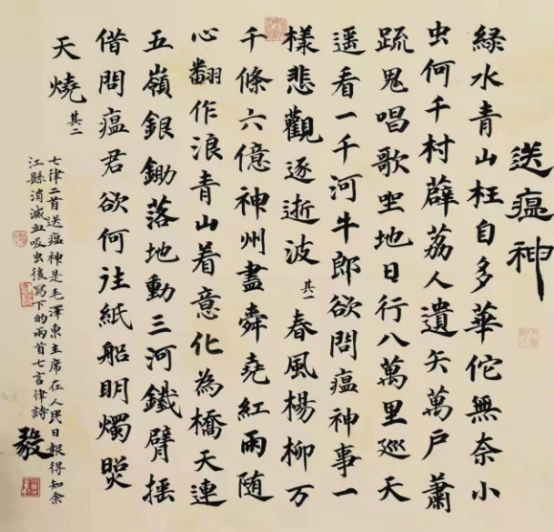 送瘟神
綠水青山枉自多華佗無奈小
虫何千村薜荔人遺矢萬戶蕭
疏鬼唱歌坐地日行八萬里巡天
遥看一千河牛郎欲問瘟神事一
樣悲觀逐逝波 其一 春風楊柳万
千條六億神州盡舜堯紅雨随
心翻作浪青山着意化為橋天連
五嶺銀鋤落地動三河鐵臂摇
借問瘟君欲何往紙船明燭照
天燒 其二
七律二首送瘟神是毛澤東主席在人民日報得知余
江縣消滅血吸虫後寫下的兩首七言律詩
毅